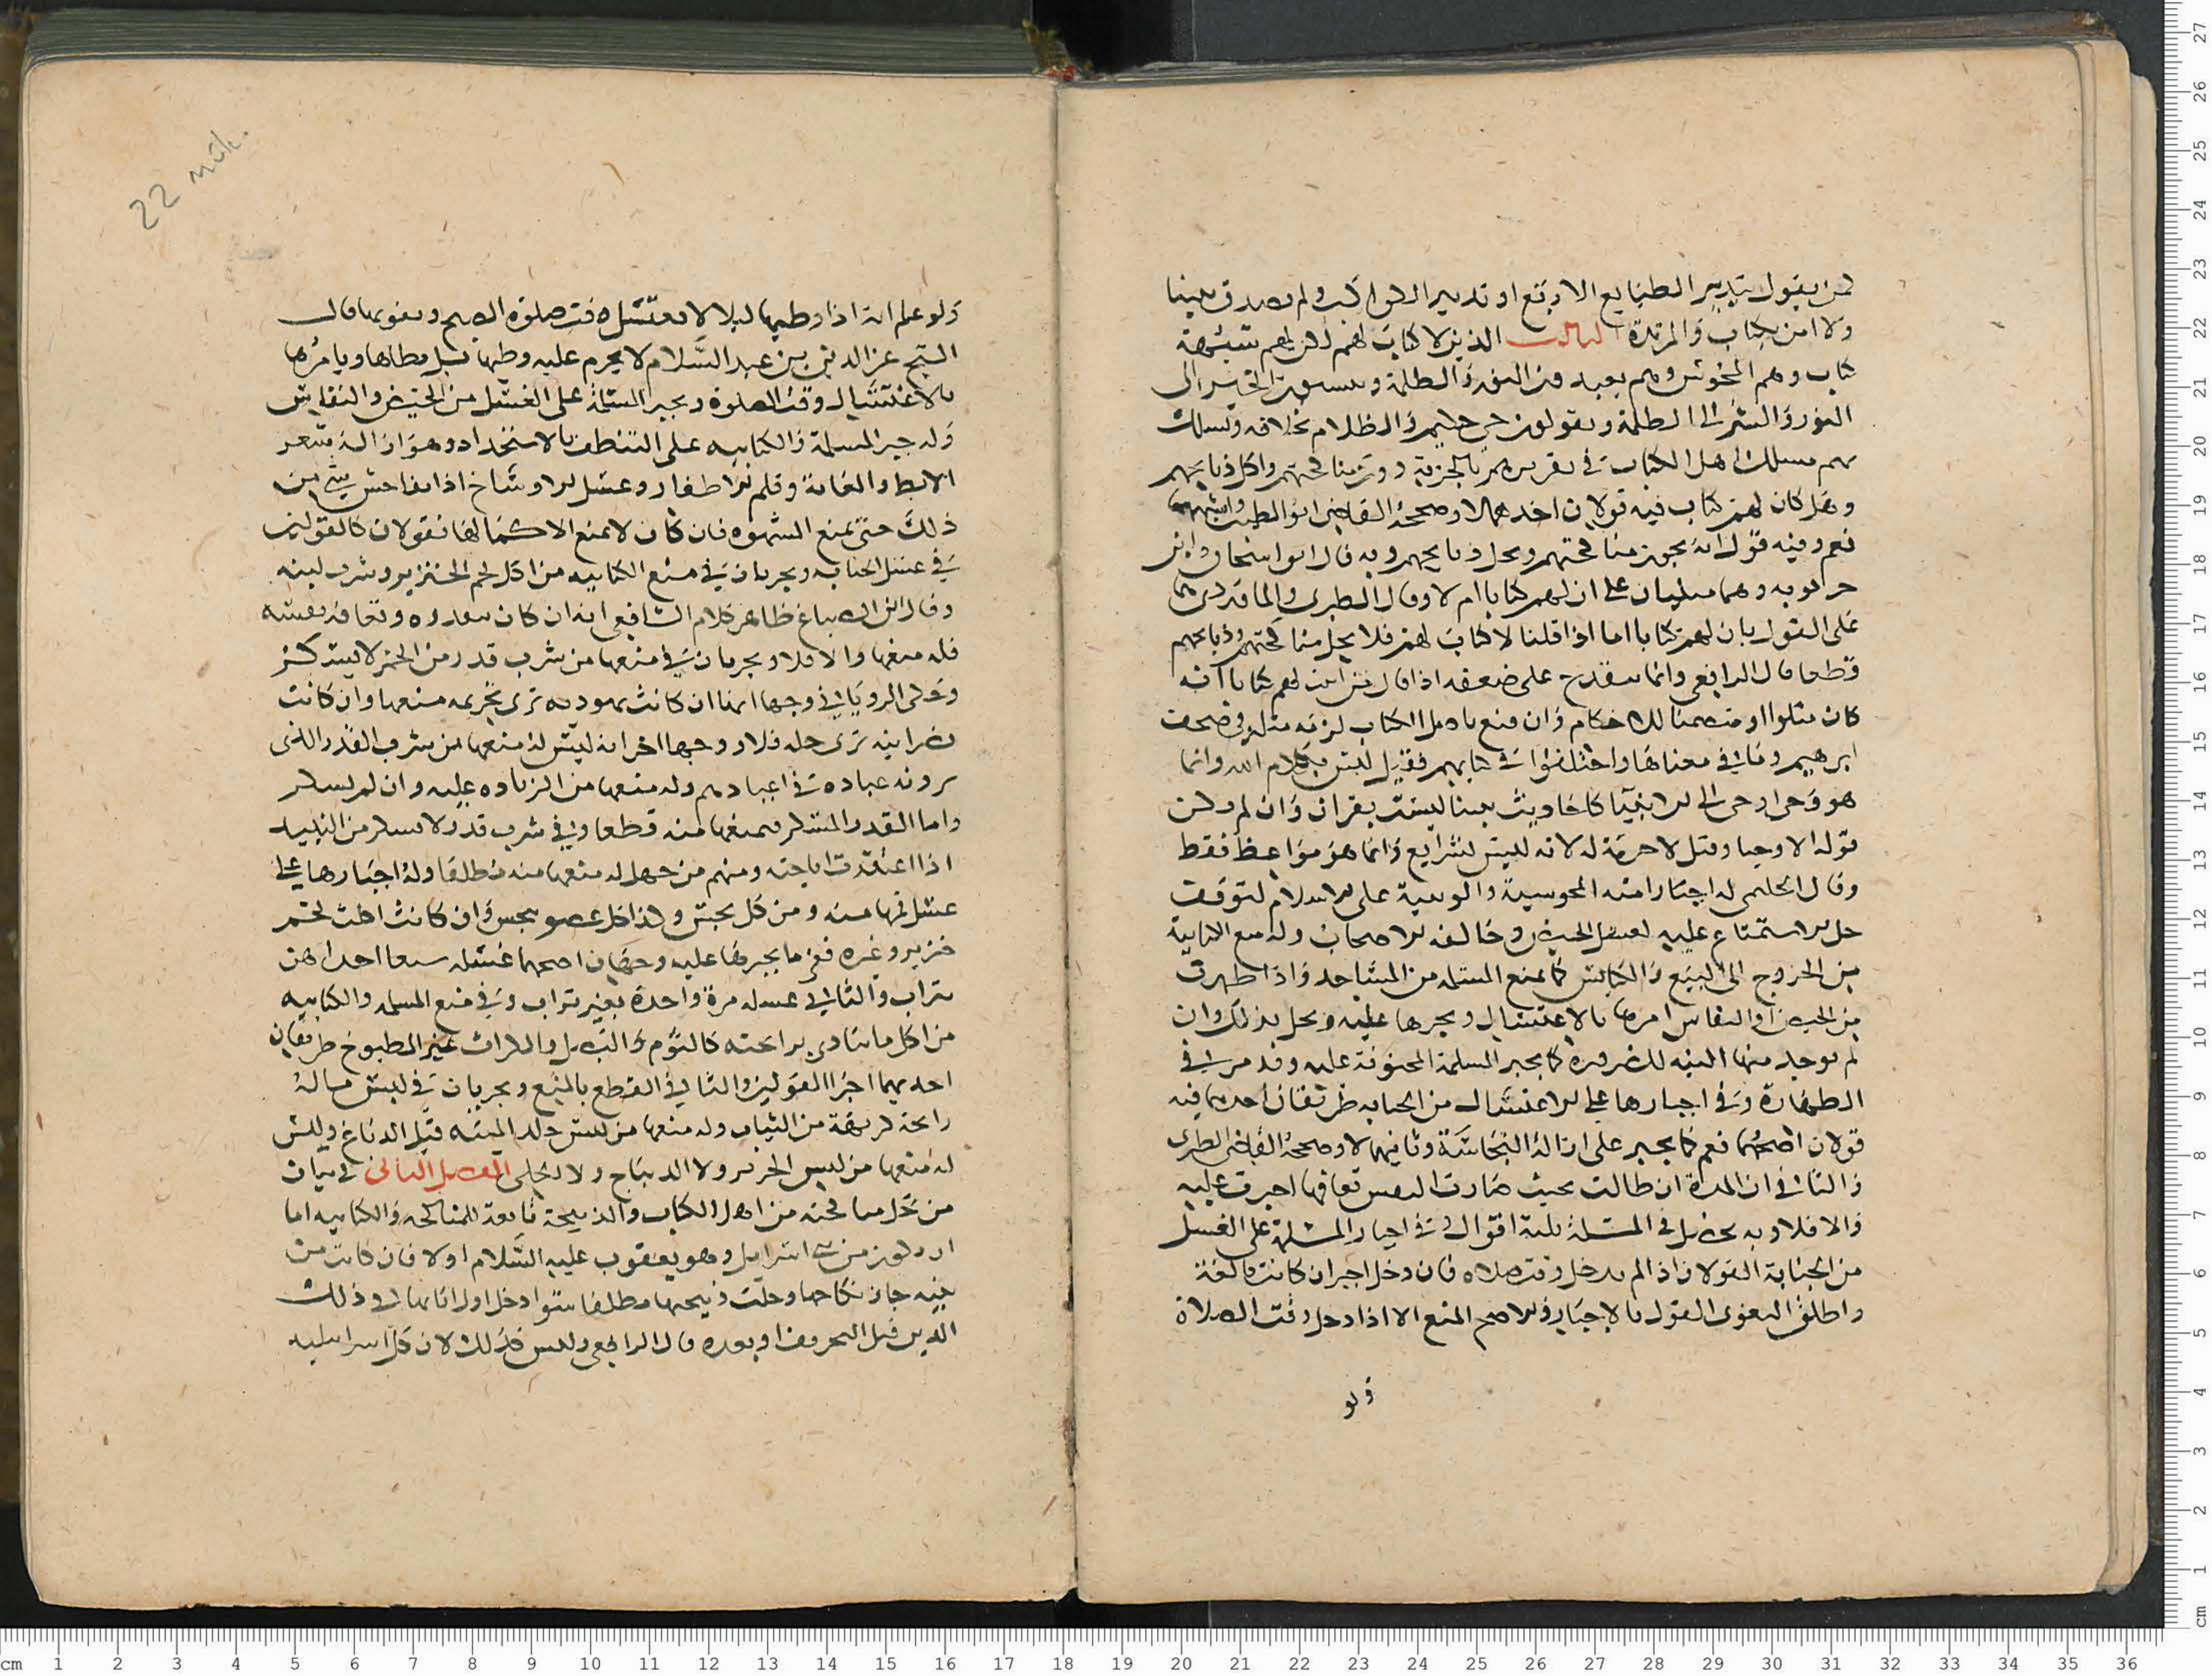 لمن يقول بتدبير الطبايع الاربع او تدبير الكواكب ولم يصدق بنبينا
ولا امن بكتاب والمرتدة الثالث الذين لا كتاب لهم لكن لهم شبهة
كتاب وهم المجوس وهم يعبدون النور والظلمة وينسبون الخير الى
النور والشر الى الظلمة ويقولون حي حليم والظلام بخلافه ونسلك
بهم مسلك اهل الكتاب في تقريرهم بالجزية دون مناكحتهم واكل ذبايحهم
وهل كان لهم كتاب فيه قولان احدهما لا وصححه القاضي ابو الطيب
نعم وفيه قول انه يجوز مناكحتهم وتحل ذبايحهم وبه قال ابو اسحاق وابن
حربويه وهما مبنيان على ان لهم كتابا ام لا وقال الطبري والماوردي هما
على القول بان لهم كتابا اما اذا قلنا لا كتاب لهم فلا يحل مناكحتهم وذبايحهم
قطعا قال الرافعي وانما يقدح على ضعفه اذا قال من اثبت لهم كتابا انه
كان متلوا او متضمنا للاحكام وان منع باهل الكتاب لزمه مثله في صحف
ابرهيم وما في معناها واختلفوا في كتابهم فقيل ليس بكلام الله وانما
هو وحي اوحى الى الانبيا كاحاديث نبينا ليست بقران وان لم يكن
قوله الا وحيا وقيل لا حرمة له لانه ليس بشرايع وانما هو مواعظ فقط
وقال الحليمي له اجبار امته المجوسية والوثنية على الاسلام لتوقف
حل الاستمتاع عليه لغسل الحيض وخالفه الاصحاب وله منع الكتابية
من الخروج الى البيع والكنايس كما يمنع المسلمة من المساجد واذا طهرت
من الحيض والنفاس امرها بالاغتسال ويجبرها عليه ويحل بذلك وان
لم يوجد منها النية للضرورة كما يجبر المسلمة المجنونة عليه وقد مر في
الطهارة وفي اجبارها على الاغتسال من الجنابة طريقان احدهما فيه
قولان اصحهما نعم كما يجبر على ازالة النجاسة وثانيهما لا وصححه القاضي الطبري
والثاني ان المدة ان طالت بحيث صارت النفس تعافها اجبرت عليه
والا فلا وبه يحصل في المسئلة ثلثة اقوال وفي اجبار المسلمة على الغسل
من الجنابة القولان اذا لم يدخل وقت صلاه فان دخل اجبر ان كانت بالغة
واطلق البغوي القول بالاجبار والاصح المنع الا اذا دخل وقت الصلاة
ولو
22 mük.
ولو علم انه اذا وطيها ليلا لا تغتسل وقت صلوة الصبح وتفوتها قال
الشيخ عز الدين بن عبد السلام لا يحرم عليه وطيها بل يطاها ويامرها
بالاغتسال وقت الصلوة ويجبر المسلمة على الغسل من الحيض والنفاس
وله جبر المسلمة والكتابيه على التنظف بالاستحداد وهو ازالة شعر
الابط والعانة وقلم الاظفار وغسل الاوساخ اذا تفاحش شي من
ذلك حتى يمنع الشهوه فان كان لا يمنع الا كمالها فقولان كالقولين
في غسل الجنابه ويجريان في منع الكتابيه من اكل لحم الخنزير وشرب لبنه
وقال ابن الصباغ ظاهر كلام الشافعي انه ان كان يتقذره وتعافه نفسه
فله منعها والا فلا ويجريان في منعها من شرب قدر من الخمر لا يسكر
وحكى الروياني وجها انها ان كانت يهوديه ترى تحريمه منعها وان كانت
نصرانيه ترى حله فلا ووجها اخر انه ليس له منعها من شرب القدر الذي
يرونه عباده في اعيادهم وله منعها من الزياده عليه وان لم يسكر
واما القدر المسكر فيمنعها منه قطعا وفي شرب قدر لا يسكر من النبيذ
اذا اعتقدت اباحته ومنهم من جعل له منعها منه مطلقا وله اجبارها على
غسل فمها منه ومن كل نجس وكذا كل عضو نجس وان كانت اكلت لحم
خنزير وغيره ففيما يجبرها عليه وجهان اصحهما غسله سبعا احداهن
بتراب والثاني غسله مرة واحدة بغير تراب وفي منع المسلمه والكتابيه
من اكل ما يتاذى برائحته كالثوم والبصل والكراث غير المطبوخ طريقان
احديهما اجرا القولين والثاني القطع بالمنع ويجريان في لبس ما له
رائحة كريهة من الثياب وله منعها من لبس جلد الميته قبل الدباغ وليس
له منعها من لبس الحرير ولا الديباج ولا الحلي الفصل الثاني في بيان
من تحل مناكحته من اهل الكتاب والذبيحة تابعة للمناكحه والكتابيه اما
ان تكون من بني اسرايل وهو يعقوب عليه السلام او لا فان كانت من
بنيه جاز نكاحها وحلت ذبيحتها مطلقا سوا دخل اول ابائها في ذلك
الدين قبل التحريف او بعده قال الرافعي وليس كذلك لان كل اسرايليه